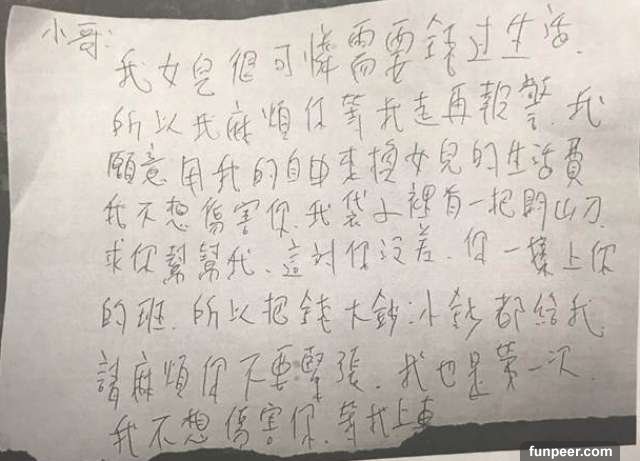 小哥：
我女兒很可憐需要錢过生活.
所以我麻煩你等我走再報警.我
願意用我的自由來換女兒的生活費
我不想傷害你.我袋子裡有一把開山刀
求你幫幫我.這対你沒差.你一樣上你
的班.所以把錢大鈔小鈔都給我
請麻煩你不要緊張.我也是第一次.
我不想傷害你.等我上車
funpeer.com